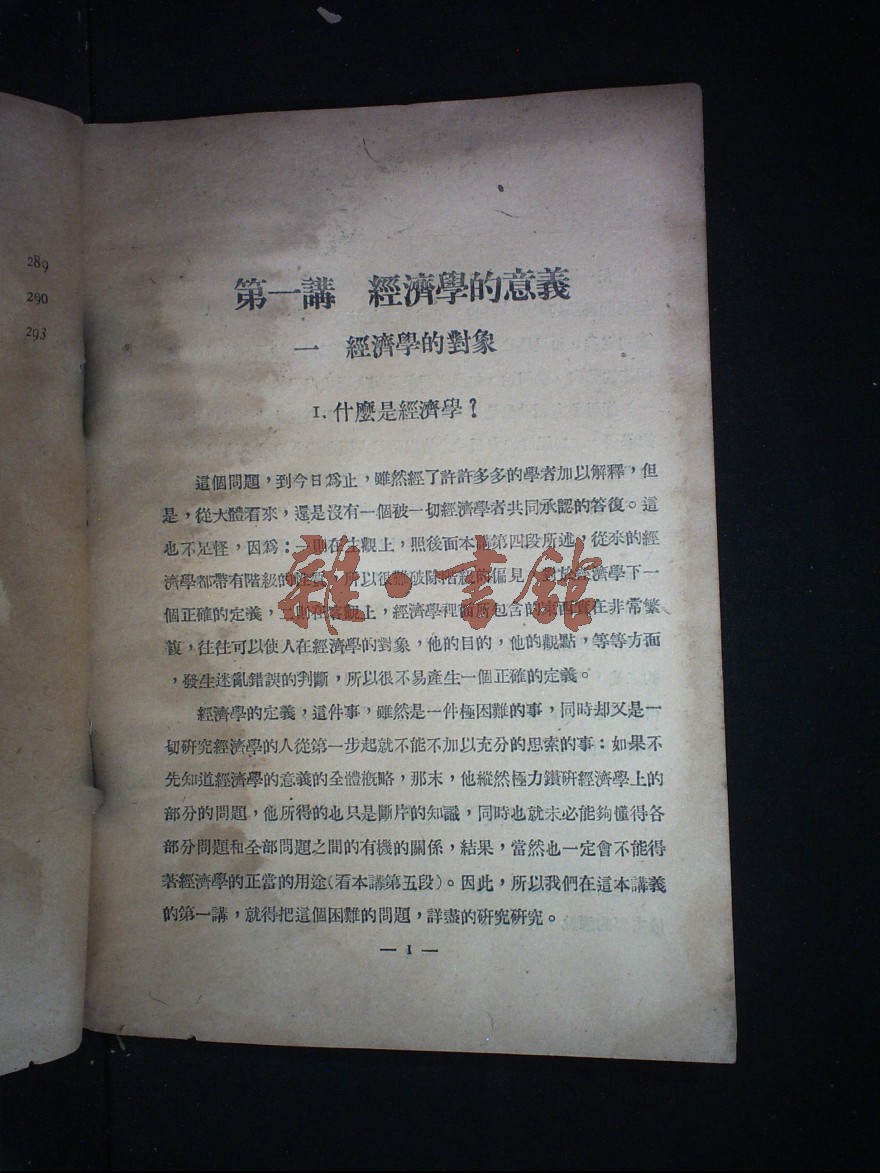 289
290
293
第一講 經濟學的意義
一 經濟學的對象
1. 什麼是經濟學?
這個問題，到今日爲止，雖然經了許許多多的學者加以解釋，但
是，從大體看來，還是沒有一個被一切經濟學者共同承認的答復。這
也不足怪，因爲：一則在主觀上，照後面本講第四段所述，從來的經
濟學都帶有階級的性質，所以很難破除階級的偏見，對於經濟學下一
個正確的定義，二則在客觀上，經濟學裡面所包含的東西實在非常繁
複，往往可以使人在經濟學的對象，他的目的，他的觀點，等等方面
，發生迷亂錯誤的判斷，所以很不易產生一個正確的定義。
經濟學的定義，這件事，雖然是一件極困難的事，同時却又是一
切硏究經濟學的人從第一步起就不能不加以充分的思索的事：如果不
先知道經濟學的意義的全體槪略，那末，他縱然極力鑽硏經濟學上的
部分的問題，他所得的也只是斷片的知識，同時也就未必能夠懂得各
部分問題和全部問題之間的有機的關係，結果，當然也一定會不能得
著經濟學的正當的用途（看本講第五段）。因此，所以我們在這本講義
的第一講，就得把這個困難的問題，詳盡的硏究硏究。
— 1 —
雜·書館